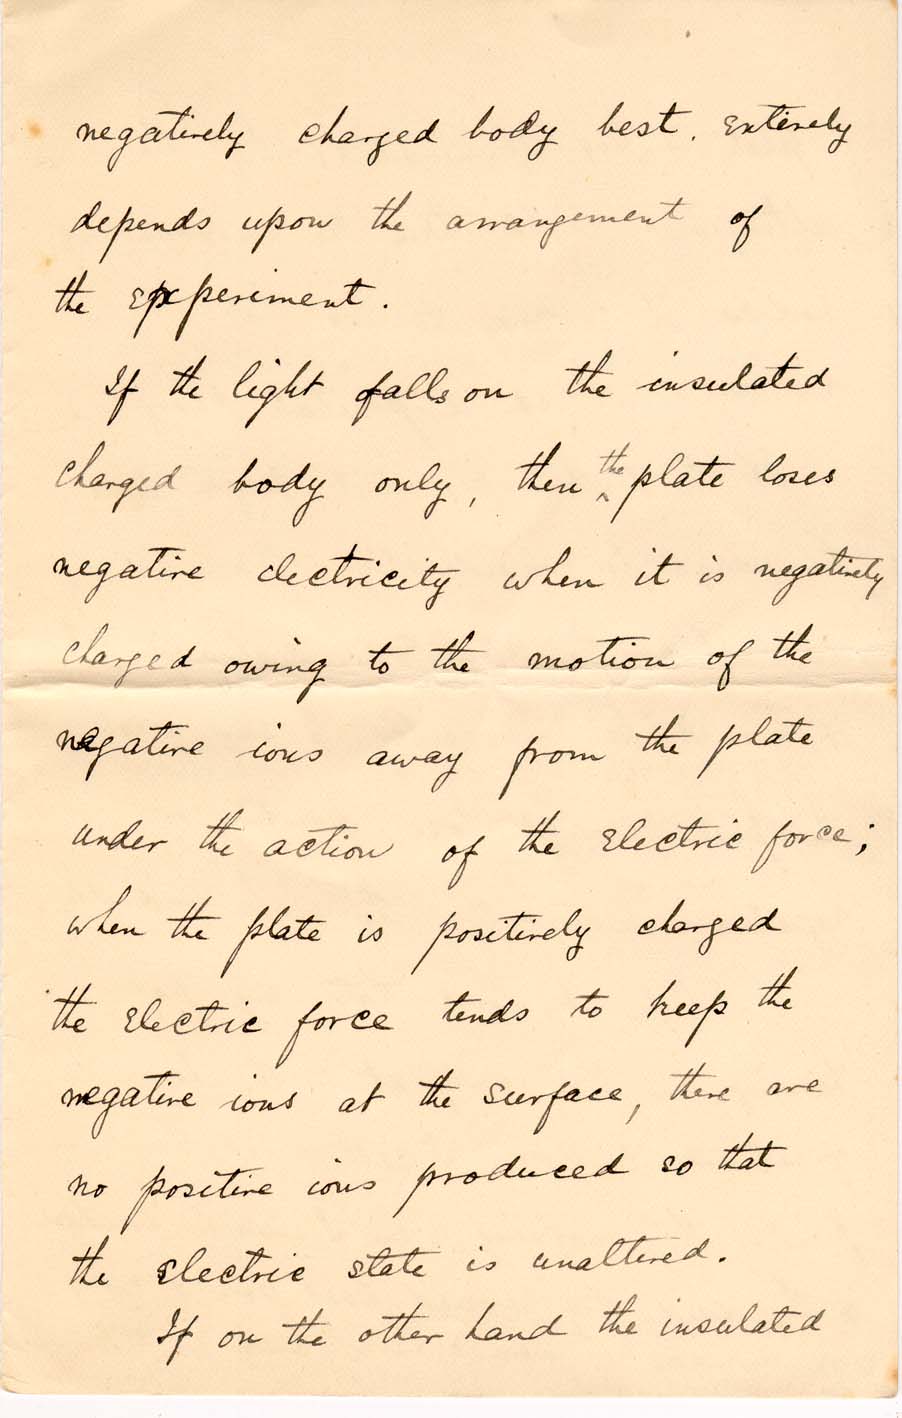 negatively charged body best. Entirely
depends upon the arrangement of
the experiment.
If the light falls on the insulated
charged body only, then the plate loses
negative electricity when it is negatively
charged owing to the motion of the
negative ions away from the plate
under the action of the Electric force;
when the plate is positively charged
the Electric force tends to keep the
negative ions at the surface, there are
no positive ions produced so that
the Electric state is unaltered.
If on the other hand the insulated